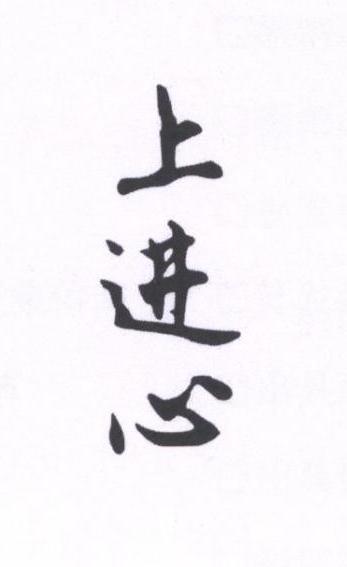 上进心